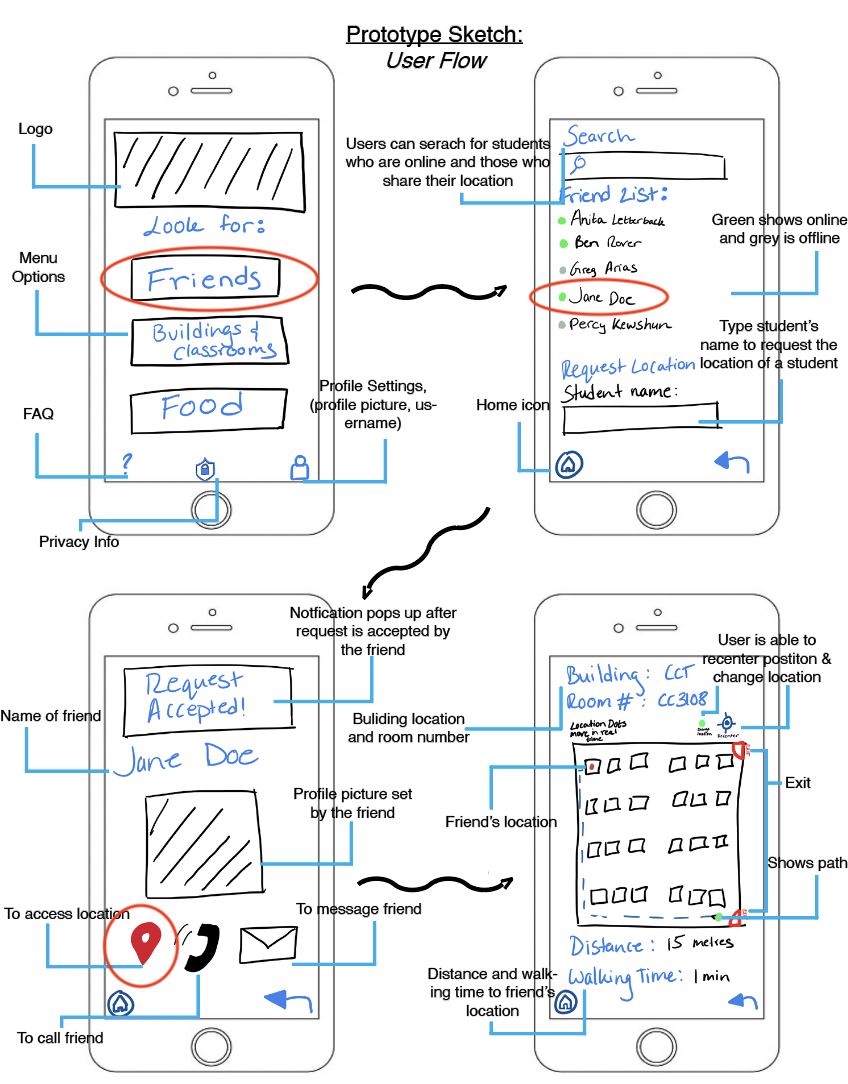 Prototype Sketch:
User Flow
Logo
Look for:
Menu
Options
Friends
Buildings &
Classrooms
Food
FAQ
?
Privacy Info
Profile Settings,
(profile picture, us-
ername)
Users can serach for students
who are online and those who
share their location
Search
Friend List:
Anita Letterback
Ben Rover
Greg Arias
Jane Doe
Percy Kewshun
Green shows online
and grey is offline
Type student's
name to request the
location of a student
Request Location
Student name:
Home icon
Notfication pops up after
request is accepted by
the friend
Request
Accepted!
Name of friend
Jane Doe
Profile picture set
by the friend
To access location
To message friend
To call friend
User is able to
recenter postiton &
change location
Building: CCT
Room #: CC3108
Buliding location
and room number
Location Dots
move in real
time
Recenter
Exit
Friend's location
Shows path
Distance: 15 metres
Walking Time: 1 min
Distance and walk-
ing time to friend's
location